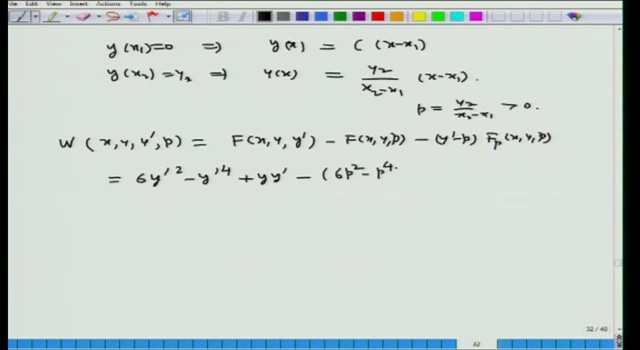 File Edit View Insert Actions Tools Help
y(x₁)=0 ⇒ y(x) = C (x-x₁)
y(x₂) = y₂ ⇒ y(x) = y₂/(x₂-x₁) (x-x₁).
p = y₂/(x₂-x₁) > 0.
W (x, y, y', p) = F(x, y, y') - F(x, y, p) - (y'-p) Fₚ(x, y, p)
= 6y'² - y'⁴ + yy' - (6p² - p⁴
32 / 40
32